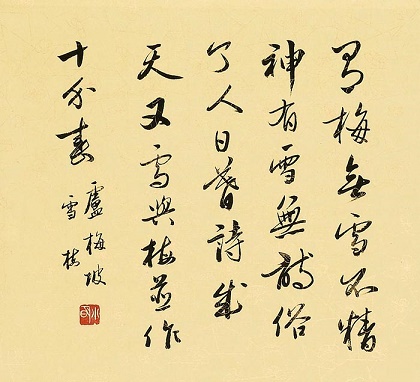 有梅無雪不精
神有雪無詩俗
了人日暮詩成
天又雪與梅並作
十分春
盧梅坡
雪梅